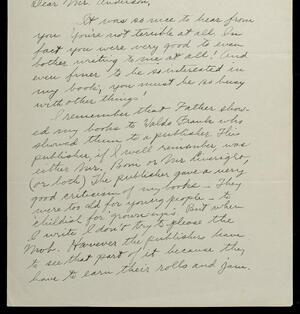 Dear Mr. Anderson,
It was so nice to hear from
you. You're not terrible at all. In
fact you were very good to even
bother writing to me at all! And
even finer to be so interested in
my books, you must be so busy
with other things.
I remember that Father show-
ed my books to Waldo Frank who
showed them to a publisher. His
publisher, if I well remember, was
either Mr. Boni or Mr Liveright,
(or both) The publisher gave a very
good criticism of my books — They
were too old for young people — to
childish for grown-ups. But when
I write I don't try to please the
Mob. However the publishers have
to see that part of it because they
have to earn their rolls and jam.